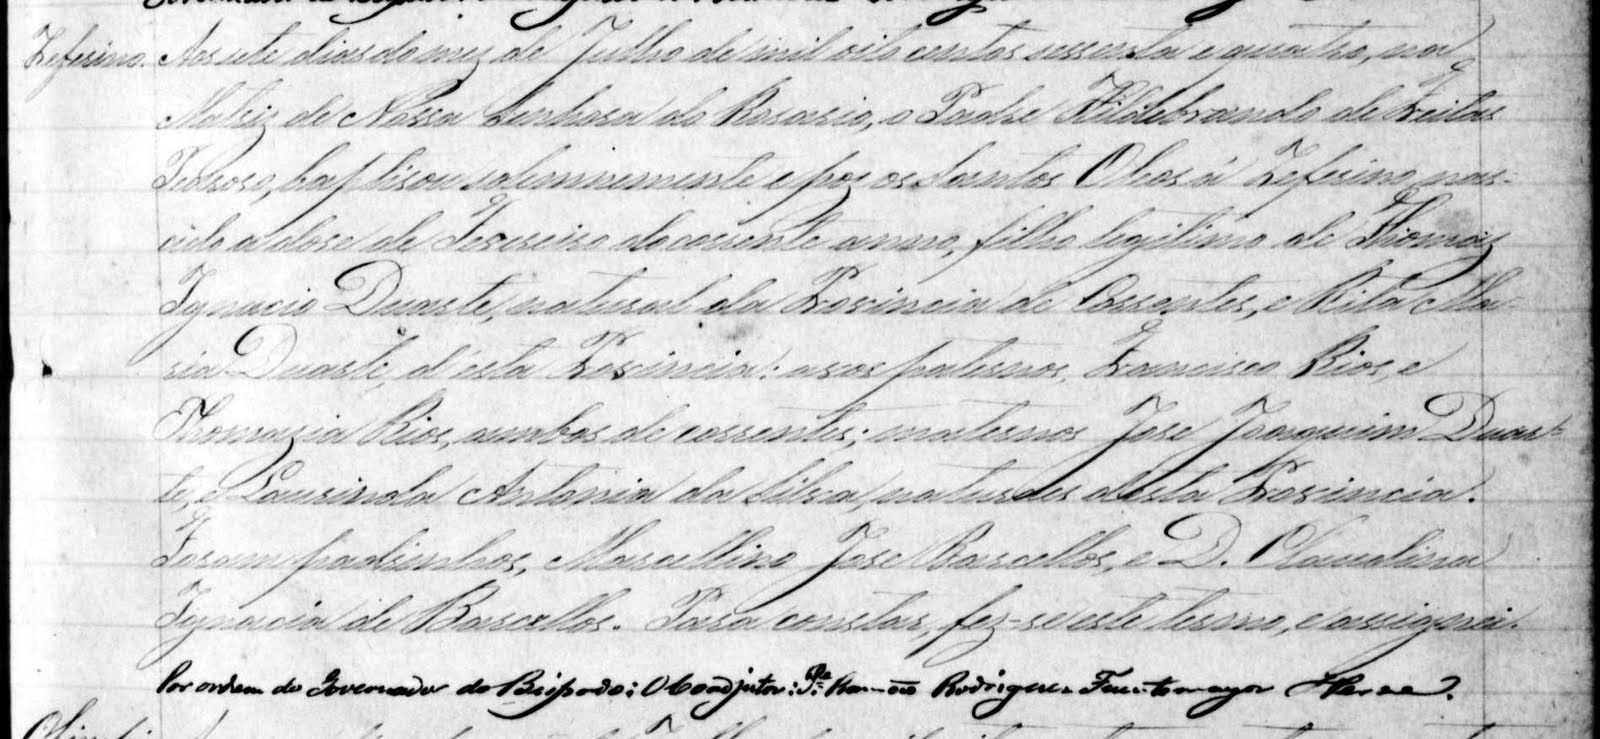 Zeferino. Aos sete dias do mez de Julho de mil oito centos sessenta e quatro, na
Matriz de Nossa Senhora do Rosario, o Padre Hildebrando de Freitas
Pedroso, baptisou solemnemente e poz os Santos Oleos á Zeferino, nas-
cido a dose de Fevereiro do corrente anno, filho legitimo de Thomaz
Ignacio Duarte, natural da Provincia de Correntes, e Rita Ma-
ria Duarte, d'esta Provincia: avos paternos, Francisco Rios, e
Thomazia Rios, ambos de Correntes; maternos Jose Joaquim Duar-
te, e Laurinda Antonia da Silva, naturaes desta Provincia.
Foram padrinhos, Marcellino Jose Barcellos, e D.
Ignacia de Barcellos. Para constar, fez-se este termo, e assignei.
Por ordem do Governador do Bispado: O Coadjutor: Pe. Ramão Rodrigues Fuentemayor